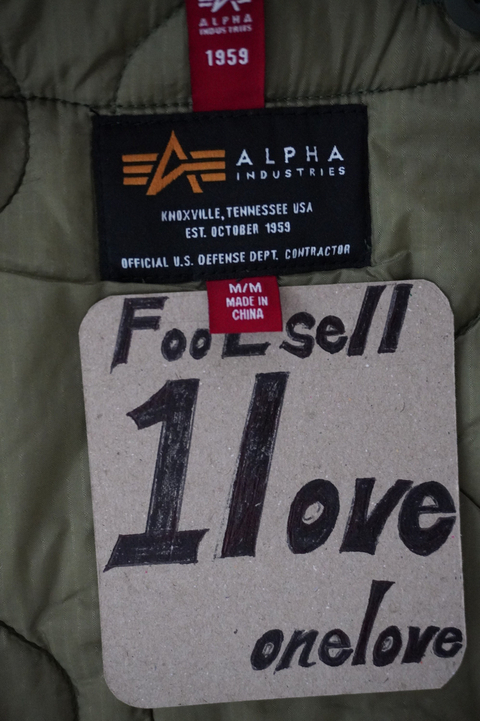 ALPHA
INDUSTRIES
1959
ALPHA
INDUSTRIES
KNOXVILLE, TENNESSEE USA
EST. OCTOBER 1959
OFFICIAL U.S. DEFENSE DEPT. CONTRACTOR
M/M
MADE IN
CHINA
FooLsell
1love
onelove